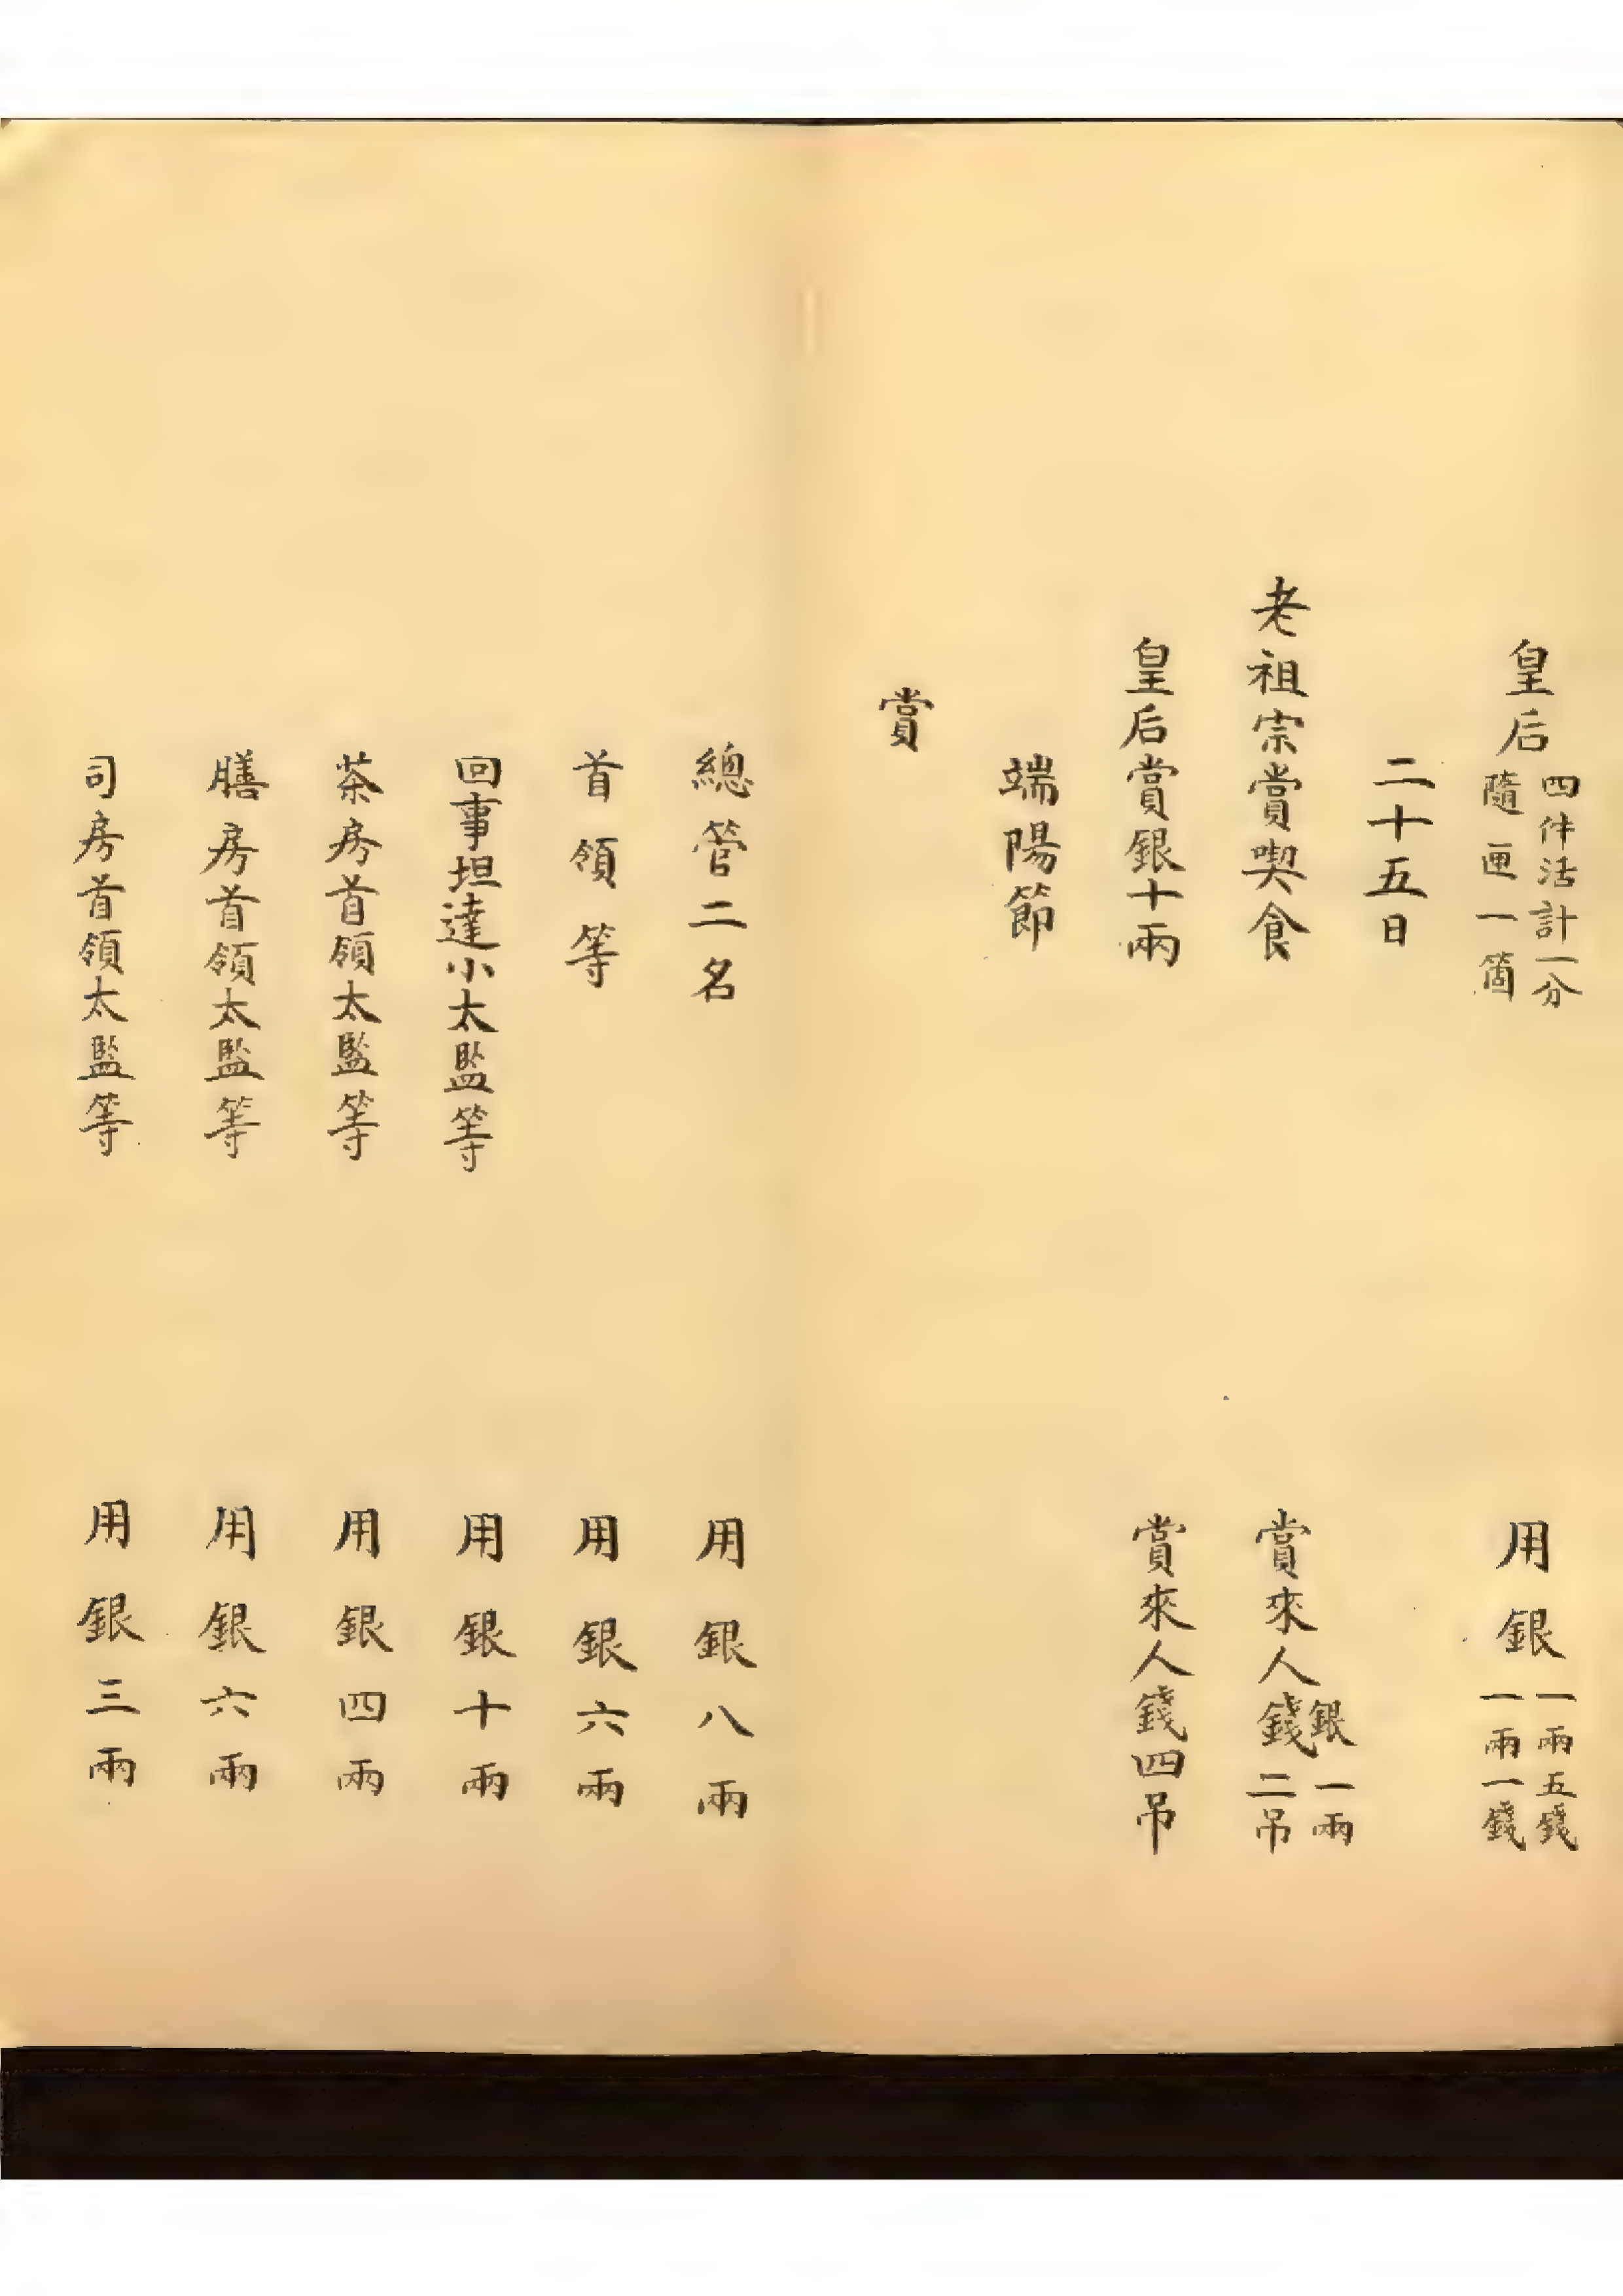 皇后四件活計一分隨匣一箇　用銀一兩五錢一兩一錢
二十五日
老祖宗賞喫食　賞來人銀一兩錢二吊
皇后賞銀十兩　賞來人錢四吊
端陽節
賞
總管二名　用銀八兩
首領等　用銀六兩
回事坦達小太監等　用銀十兩
茶房首領太監等　用銀四兩
膳房首領太監等　用銀六兩
司房首領太監等　用銀三兩